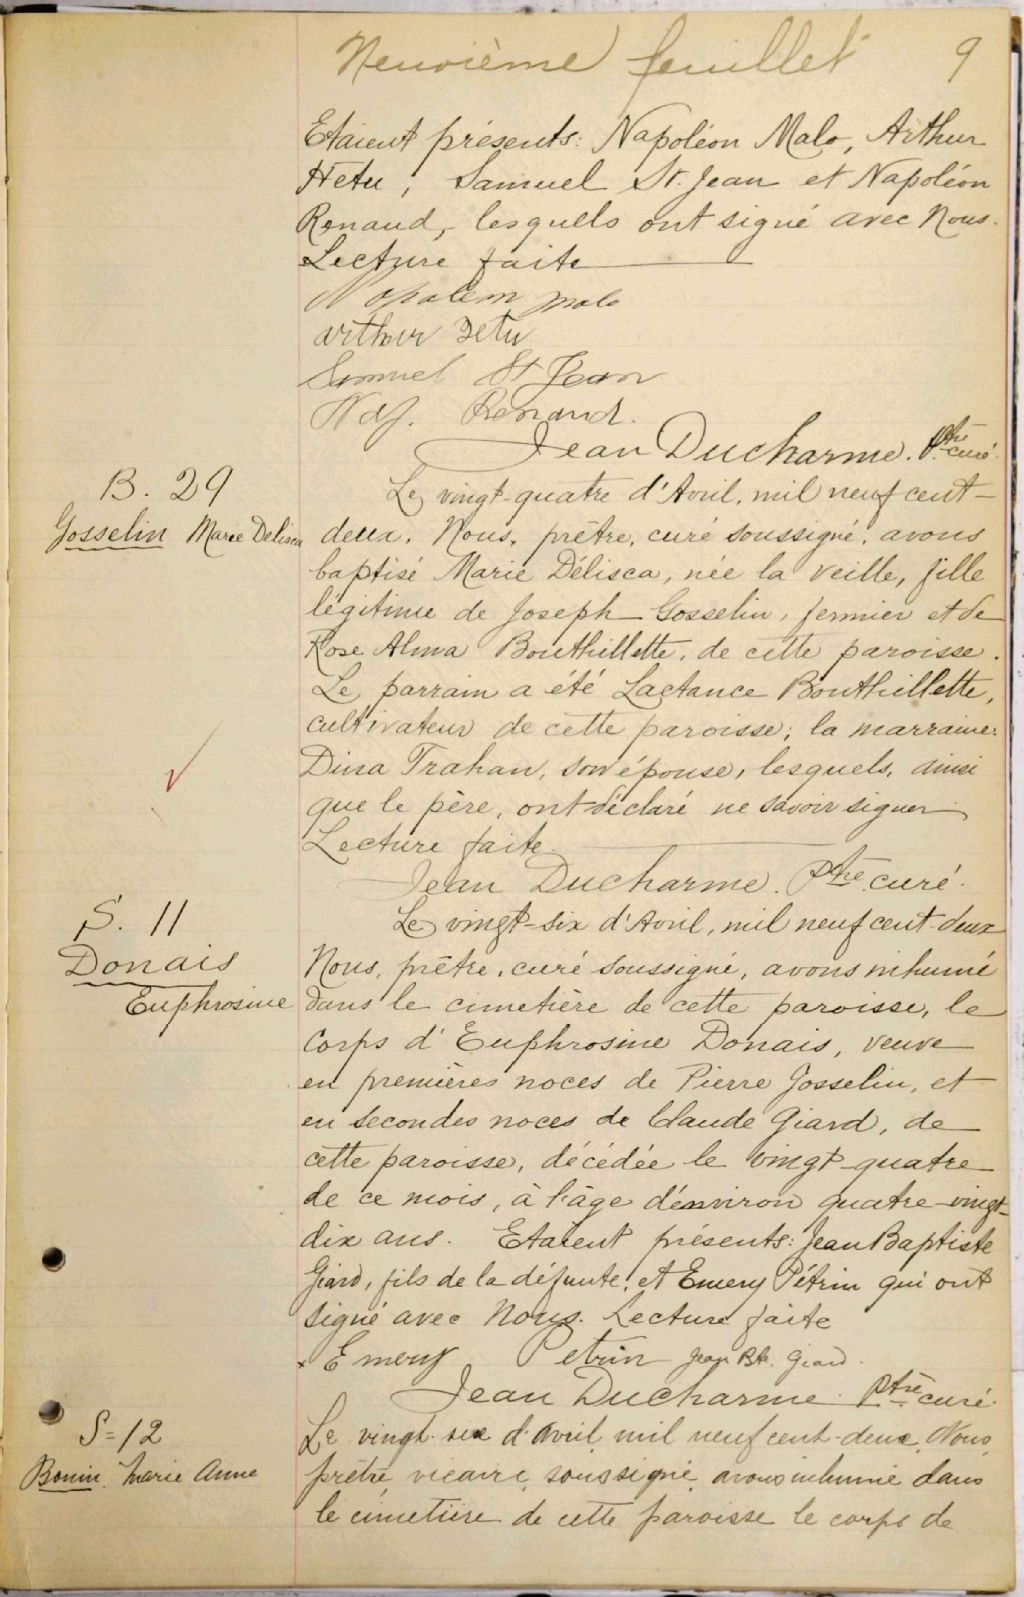 Neuvième feuillet 9
Etaient présents: Napoléon Malo, Arthur
Hetu, Samuel St. Jean et Napoléon
Renaud, lesquels ont signé avec Nous.
Lecture faite
Napoleon malo
arthur Hetu
Samuel St Jean
Nap. Renaud.
Jean Ducharme. Ptre curé.
B. 29
Gosselin Marie Delisca
Le vingt-quatre d'Avril, mil neuf cent-
deux, Nous, prêtre, curé soussigné, avons
baptisé Marie Délisca, née la veille, fille
légitime de Joseph Gosselin, fermier et de
Rose Alma Bouthillette, de cette paroisse.
Le parrain a été Lactance Bouthillette,
cultivateur de cette paroisse; la marraine:
Dina Trahan, son épouse, lesquels, ainsi
que le père, ont déclaré ne savoir signer.
Lecture faite.
Jean Ducharme. Ptre curé.
S. 11
Donais
Euphrosine
Le vingt-six d'Avril, mil neuf cent-deux
Nous, prêtre, curé soussigné, avons inhumé
dans le cimetière de cette paroisse, le
Corps d'Euphrosine Donais, veuve
en premières noces de Pierre Josselin, et
en secondes noces de Claude Giard, de
cette paroisse, décédée le vingt-quatre
de ce mois, à l'âge d'environ quatre-vingt-
dix ans. Etaient présents: Jean Baptiste
Giard, fils de la défunte, et Emery Pétrin qui ont
signé avec Nous. Lecture faite
x Emery Petrin Jean Bte. Giard.
Jean Ducharme. Ptre curé.
S=12
Bonin. Marie Anne
Le vingt-six d'Avril, mil neuf cent-deux, Nous,
prêtre, vicaire, soussigné, avons inhumé dans
le cimetière de cette paroisse le corps de